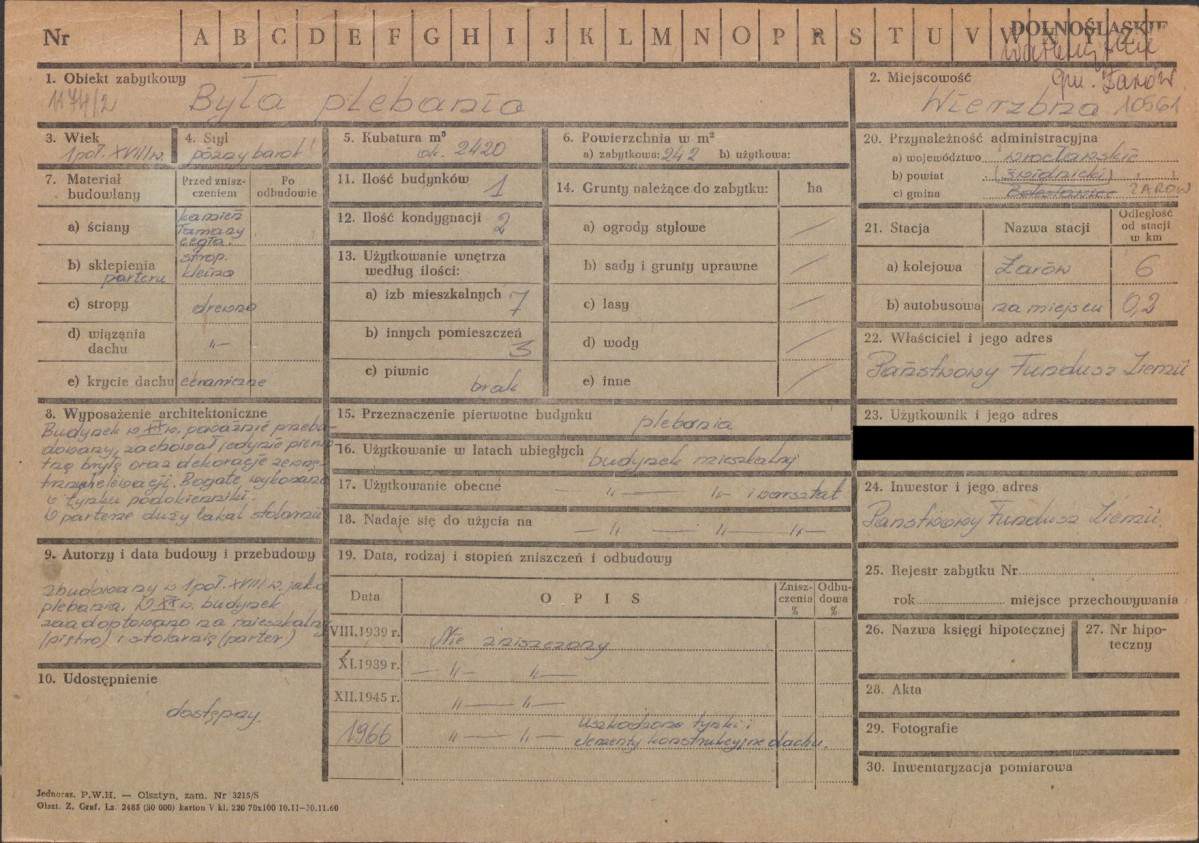 Nr A B C D E F G H I J K L M N O P R S T U V W X Y Z
DOLNOŚLĄSKIE
gm. Żarów
1. Obiekt zabytkowy
1174/2
Była plebania
2. Miejscowość
Wierzbna 10561
3. Wiek
1 poł. XVIII w.
4. Styl
późny barok
5. Kubatura m³
ok. 2420
6. Powierzchnia w m²
a) zabytkowa: 242 b) użytkowa:
7. Materiał budowlany
Przed znisz-
czeniem
Po
odbudowie
a) ściany
kamień
łamany
cegła
b) sklepienia
parteru
strop.
kleina
c) stropy
drewno
d) wiązania
dachu
-„-
e) krycie dachu ceramiczne
8. Wyposażenie architektoniczne
Budynek w XX w. poważnie przebu-
dowany, zachował jedynie pierwo-
tną bryłę oraz dekorację zewnę-
trznej elewacji. Bogate wykonane
w tynku podokienniki.
W parterze duży lokal stolarni
9. Autorzy i data budowy i przebudowy
zbudowany w 1 poł. XVIII w. jako
plebania. W XX w. budynek
zaadoptowano na mieszkalny
(piętro) i stolarnię (parter)
10. Udostępnienie
dostępny
11. Ilość budynków 1
12. Ilość kondygnacji 2
13. Użytkowanie wnętrza
według ilości:
a) izb mieszkalnych 7
b) innych pomieszczeń
3
c) piwnic
brak
14. Grunty należące do zabytku: ha
a) ogrody stylowe /
b) sady i grunty uprawne /
c) lasy /
d) wody /
e) inne /
15. Przeznaczenie pierwotne budynku
plebania
16. Użytkowanie w latach ubiegłych budynek mieszkalny
17. Użytkowanie obecne — „ — „ — i warsztat
18. Nadaje się do użycia na — „ — „ — „ —
19. Data, rodzaj i stopień zniszczeń i odbudowy
Data O P I S Znisz-
czenia
% Odbu-
dowa
%
VIII.1939 r. Nie zniszczony
XI.1939 r. — „ — „ —
XII.1945 r. „ — „ —
1966 „ — „ — uszkodzone tynki i
elementy konstrukcyjne dachu.
20. Przynależność administracyjna
a) województwo wrocławskie
b) powiat (świdnicki)
c) gmina ŻARÓW
21. Stacja Nazwa stacji Odległość
od stacji
w km
a) kolejowa Żarów 6
b) autobusowa na miejscu 0,2
22. Właściciel i jego adres
Państwowy Fundusz Ziemii
23. Użytkownik i jego adres
24. Inwestor i jego adres
Państwowy Fundusz Ziemii
25. Rejestr zabytku Nr
rok miejsce przechowywania
26. Nazwa księgi hipotecznej
27. Nr hipo-
teczny
28. Akta
29. Fotografie
30. Inwentaryzacja pomiarowa
Jednoraz. P.W.H. — Olsztyn, zam. Nr 3215/S
Olszt. Z. Graf. Lz. 2488 (50 000) karton V kl. 220 70x100 10.11—30.11.60